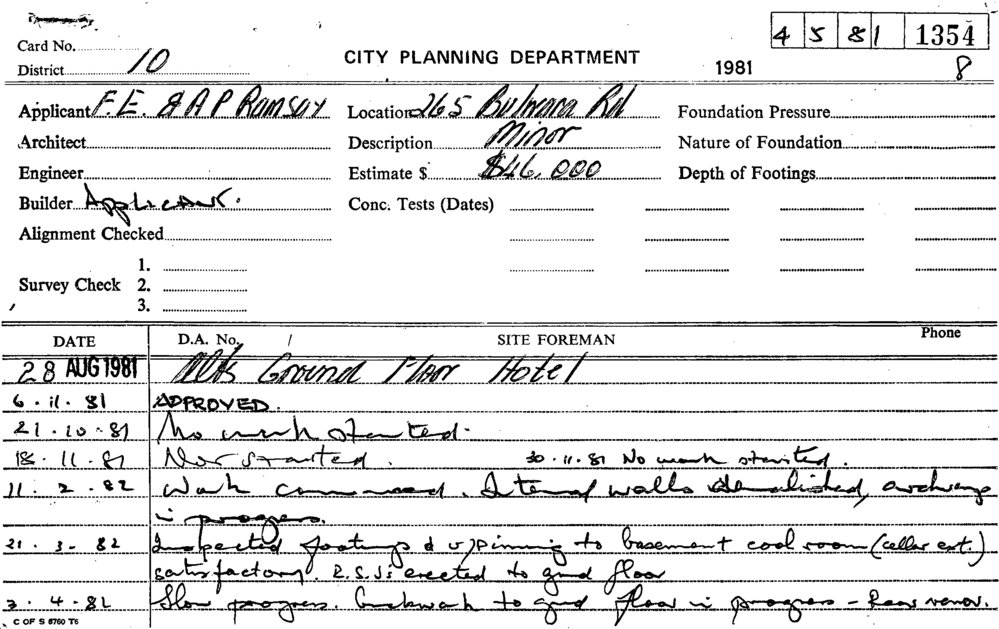 Card No. 4 5 81 1354
District 10 CITY PLANNING DEPARTMENT 1981 8
Applicant F.E. & A P Ramsay Location 265 Bulwara Rd Foundation Pressure
Architect Description Minor Nature of Foundation
Engineer Estimate $ $46,000 Depth of Footings
Builder Applicant. Conc. Tests (Dates)
Alignment Checked
1.
Survey Check 2.
3.
DATE D.A. No. SITE FOREMAN Phone
28 AUG 1981 Alts Ground Floor Hotel
6.11.81 APPROVED.
21.10.81 No work started.
18.11.81 Not started. 30.11.81 No work started.
11.2.82 Work commenced. Internal walls demolished, archways
in progress.
21.3.82 Inspected footings & u/pinning to basement cool room (cellar ext.)
satisfactory. R.S.Js erected to gnd floor
3.4.82 Slow progress. Brickwork to gnd floor in progress - Rear renov.
C OF S 8760 T6